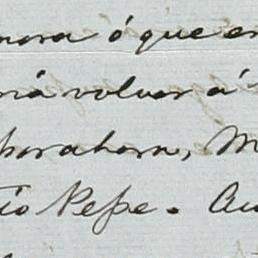 mora ó que en
má volver á
por ahora, M
tío Pepe. Au